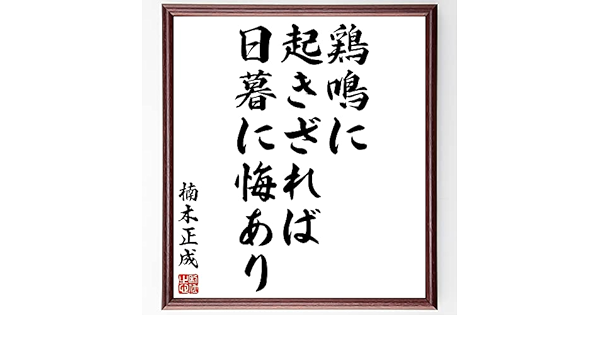 鶏鳴に
起きざれば
日暮に悔あり
楠木正成